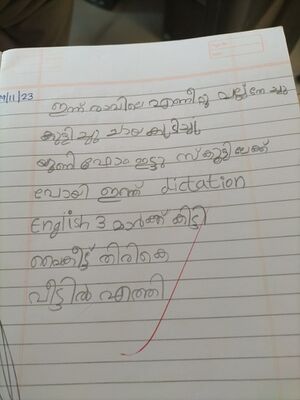 /11/23
ഇന്ന് രാവിലെ എണീച്ചു പല്ല് തേച്ചു
കുളിച്ചു ചായ കുടിച്ചു
യൂണി ഫോം ഇട്ടു സ്കൂളിലേക്ക്
പോയി ഇന്ന് dictation
English 3 മാർക്ക് കിട്ടി
വൈകീട്ട് തിരികെ
വീട്ടിൽ എത്തി